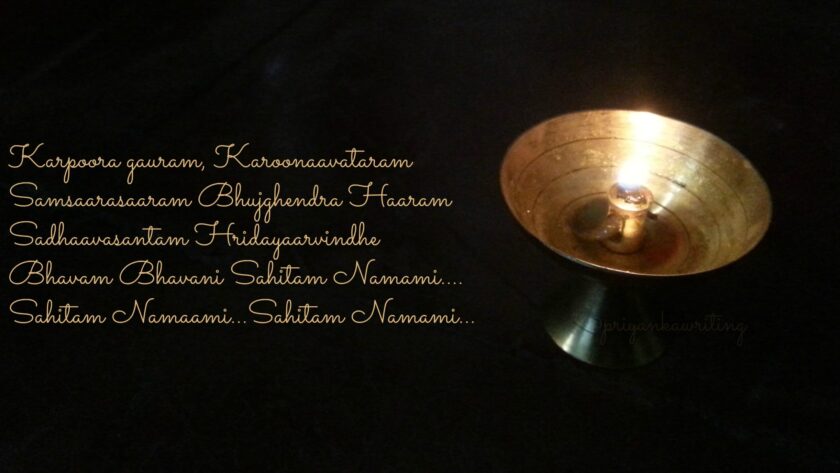 Karpoora gauram, Karoonaavataram
Samsaarasaaram Bhujghendra Haaram
Sadhaavasantam Hridayaarvindhe
Bhavam Bhavani Sahitam Namami....
Sahitam Namaami... Sahitam Namami...
priyankawriting